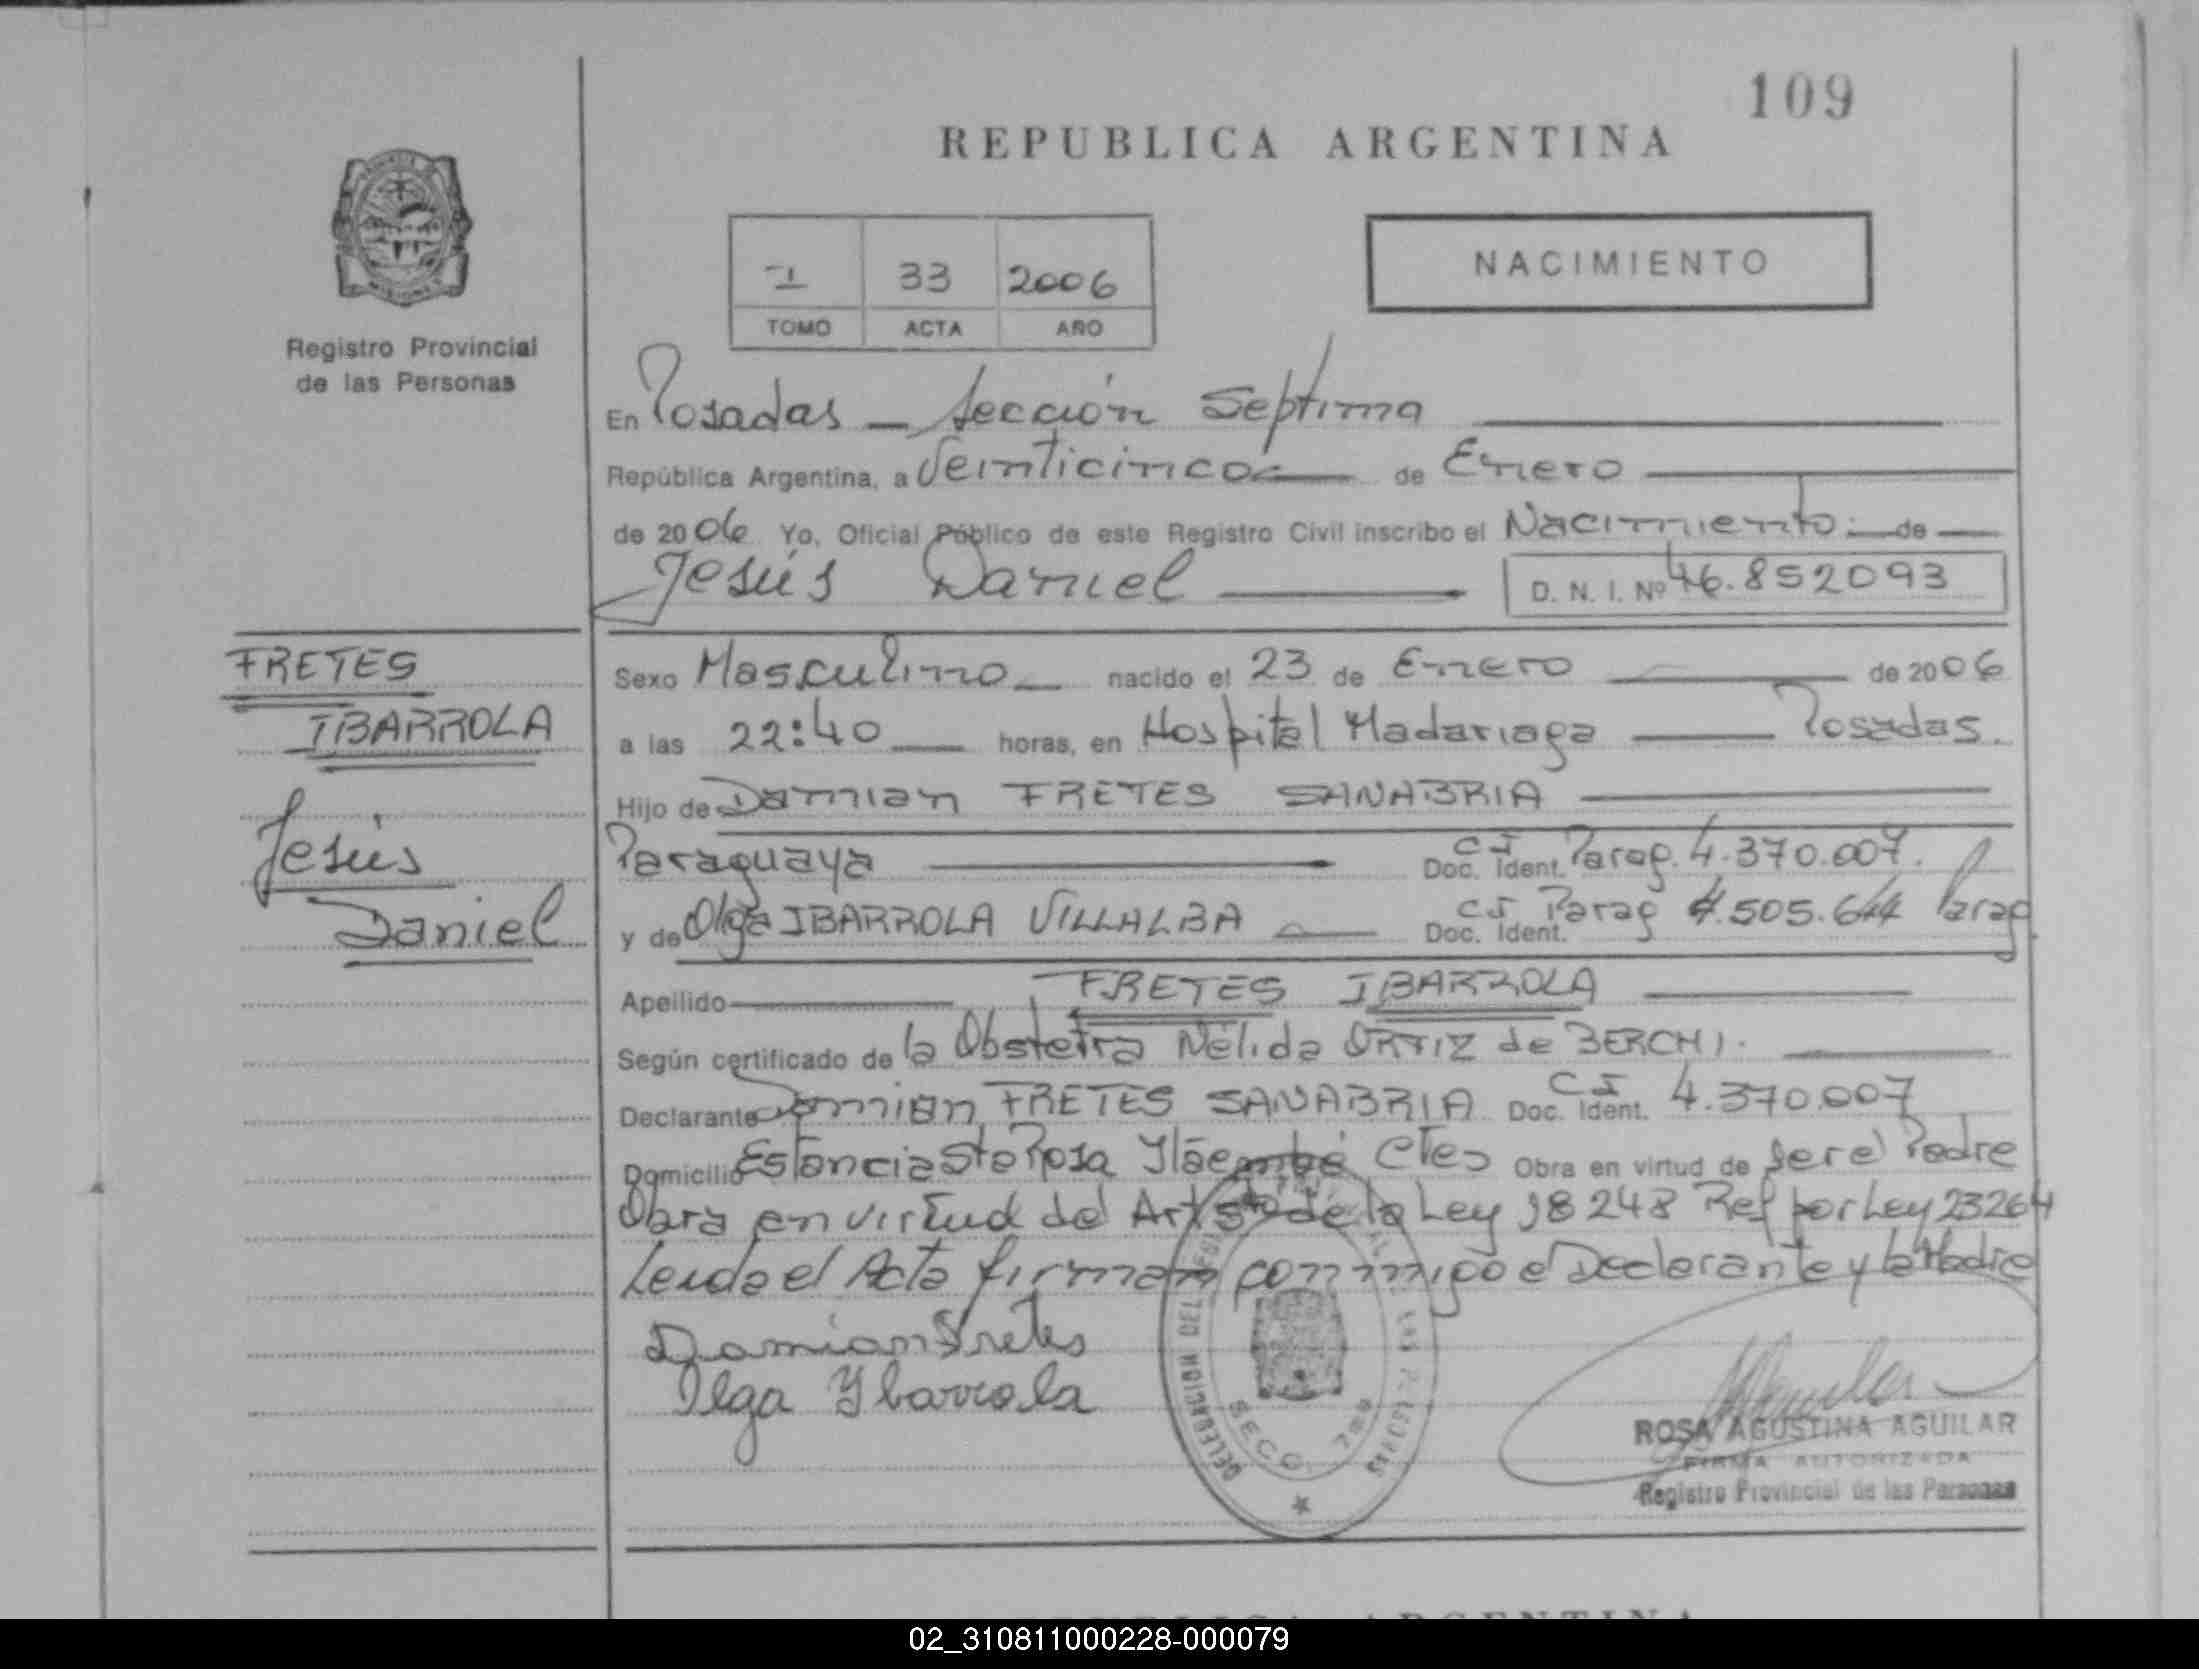 109
REPUBLICA ARGENTINA
I 33 2006
TOMO ACTA AÑO
NACIMIENTO
Registro Provincial
de las Personas
En Posadas - Sección Septima
República Argentina, a Veinticinco de Enero
de 2006 Yo, Oficial Público de este Registro Civil inscribo el Nacimiento de
Jesús Daniel D. N. I. Nº 46.852093
FRETES
IBARROLA
Jesús
Daniel
Sexo Masculino nacido el 23 de Enero de 2006
a las 22:40 horas, en Hospital Madariaga Posadas.
Hijo de Damian FRETES SANABRIA
Paraguaya Doc. Ident. CI Parag. 4.370.007.
y de Olga IBARROLA VILLALBA Doc. Ident. CI Parag 4.505.644 Parag
Apellido FRETES IBARROLA
Según certificado de la Obstetra Nélida ORTIZ de BERCHI.
Declarante Damian FRETES SANABRIA Doc. Ident. CI 4.370.007
Domicilio Estancia Sta Rosa Itaembé Ctes Obra en virtud de ser el Padre
Obra en virtud del Art 5to de la Ley 18248 Ref por Ley 23264
Leida el Acta firman conmigo el Declarante y la Madre
Damian Fretes
Olga Ybarrola
DELEGACION DEL LAS PERSONAS
SECC.
ROSA AGUSTINA AGUILAR
FIRMA AUTORIZADA
Registro Provincial de las Personas
REPUBLICA ARGENTINA
02_310811000228-000079